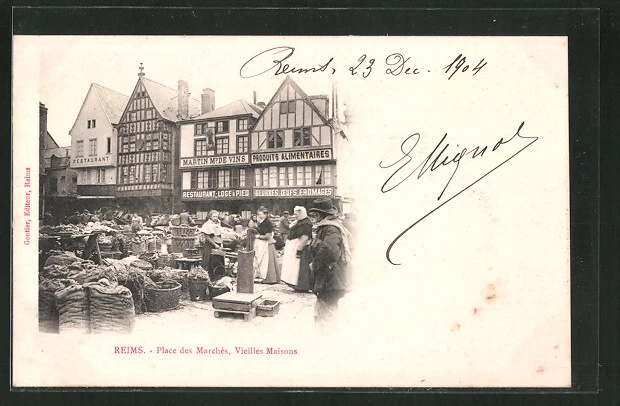 Reims, 23 Dec. 1904
EMignon
RESTAURANT
MARTIN Md DE VINS
PRODUITS ALIMENTAIRES
RESTAURANT-LOGE A PIED
BEURRES ŒUFS FROMAGES
Gontier, Editeur, Reims
REIMS. - Place des Marchés, Vieilles Maisons